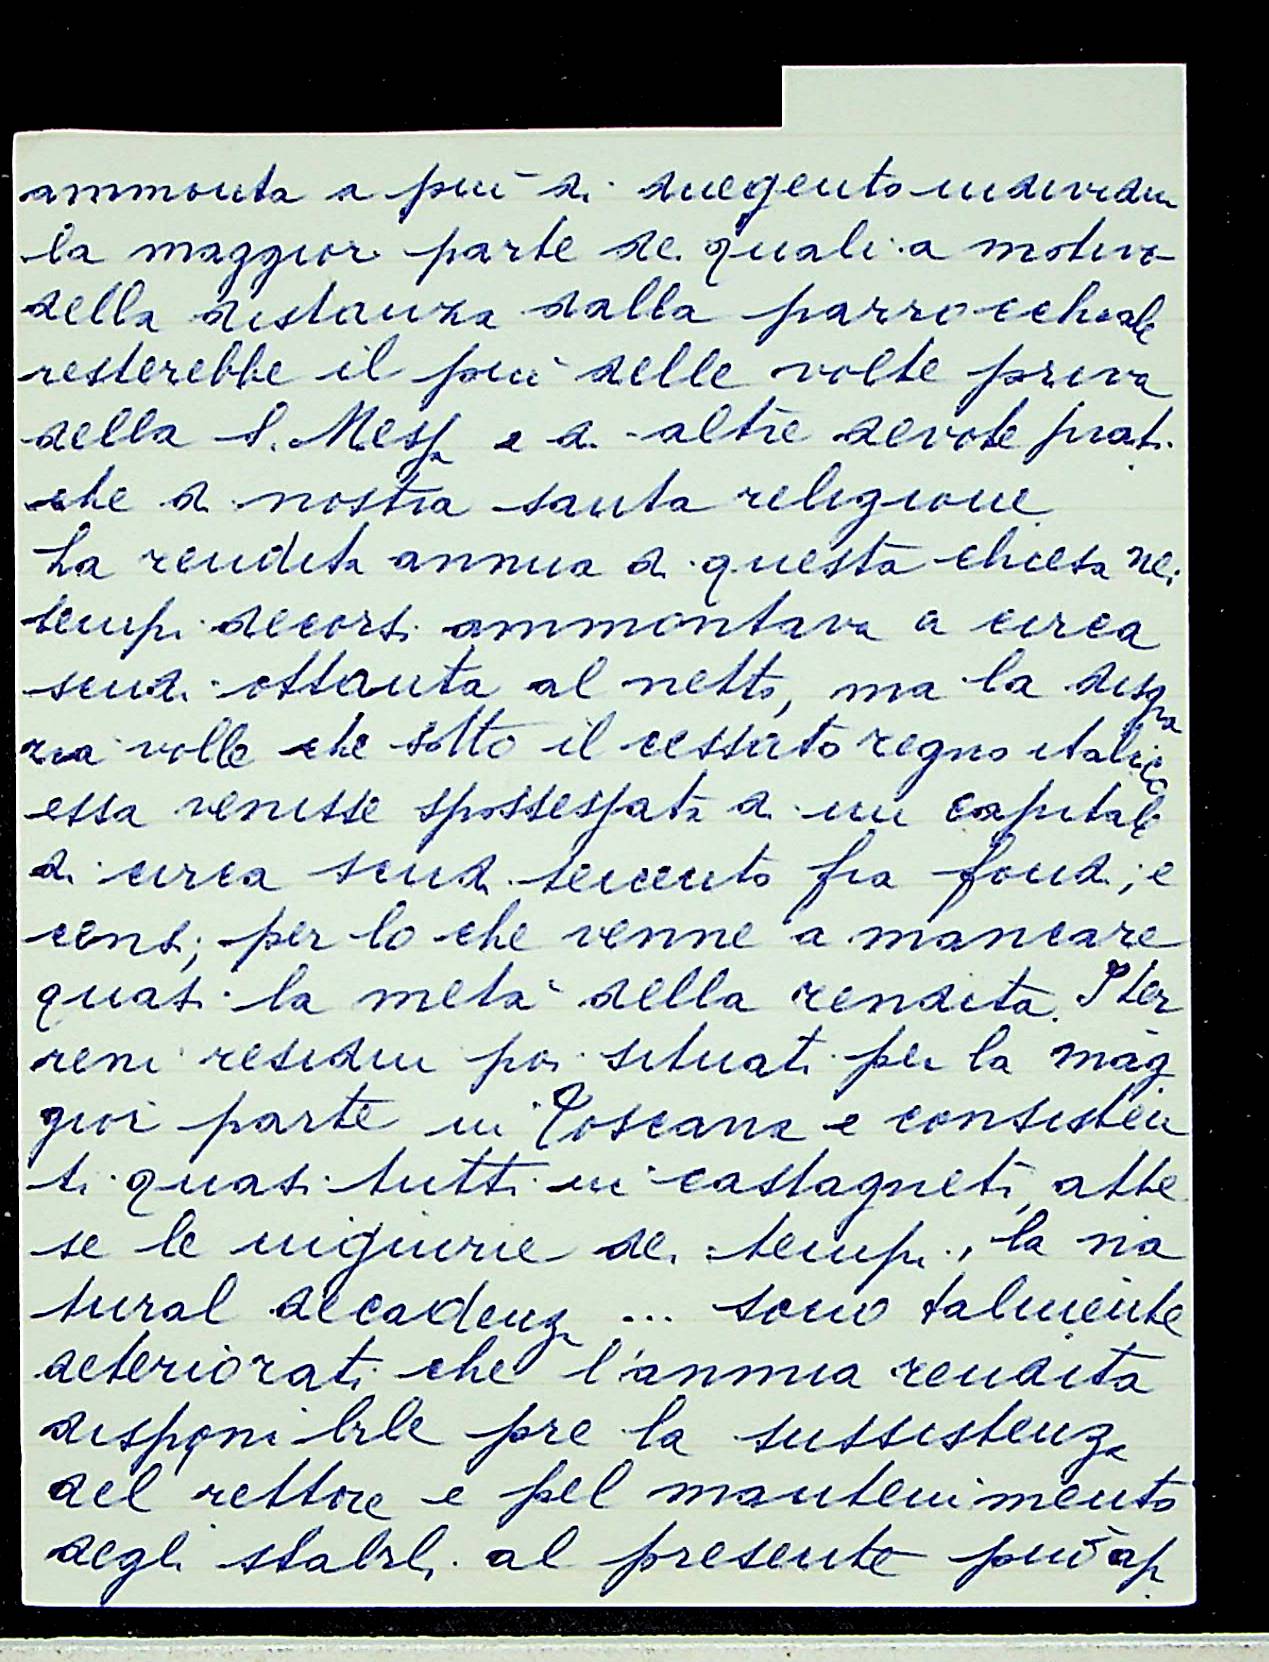 ammonta a più di duegento individui
la maggior parte de quali a motivo
della distanza dalla parrocchiale
resterebbe il più delle volte priva
della S. Messa e di altre devote prati
che di nostra santa religione
La rendita annua di questa chiesa nei
tempi decorsi ammontava a circa
scudi ottanta al netto, ma la disgra
zia volle che sotto il cessato regno italico
essa venisse spossessata di un capitale
di circa scudi seicento fra fondi, e
censi; per lo che venne a mancare
quasi la metà della rendita. I ter
reni residui poi situati per la mag
gior parte in Toscana e consisten
ti quasi tutti in castagneti, atte
se le ingiurie dei tempi, la na
tural decadenza ... sono talmente
deteriorati che l'annua rendita
disponibile pre la sussistenza
del rettore e pel mantenimento
degli stabili al presente può ap